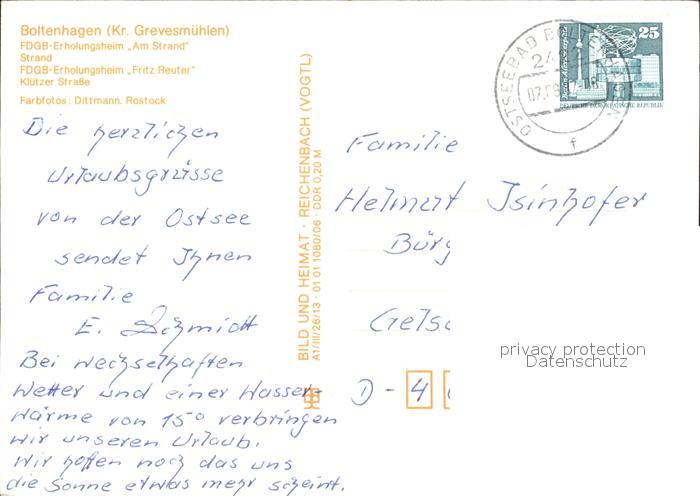 Boltenhagen (Kr. Grevesmühlen)
FDGB-Erholungsheim „Am Strand"
Strand
FDGB-Erholungsheim „Fritz Reuter"
Klützer Straße
Farbfotos: Dittmann, Rostock
Die herzlichen
Urlaubsgrüsse
von der Ostsee
sendet Ihnen
Familie
E. Schmidt
Bei wechselhaften
Wetter und einer Wasser-
wärme von 15° verbringen
wir unseren Urlaub.
Wir hoffen noch das uns
die Sonne etwas mehr scheint.
BILD UND HEIMAT · REICHENBACH (VOGTL)
A1/III/26/13 · 01 01 1080/06 · DDR 0,20 M
OSTSEEBAD BOLTENHAGEN
24
f
25
DEUTSCHE DEMOKRATISCHE REPUBLIK
Familie
Helmut Isinhofer
Bürg
Gelsc
D - 4
privacy protection
Datenschutz